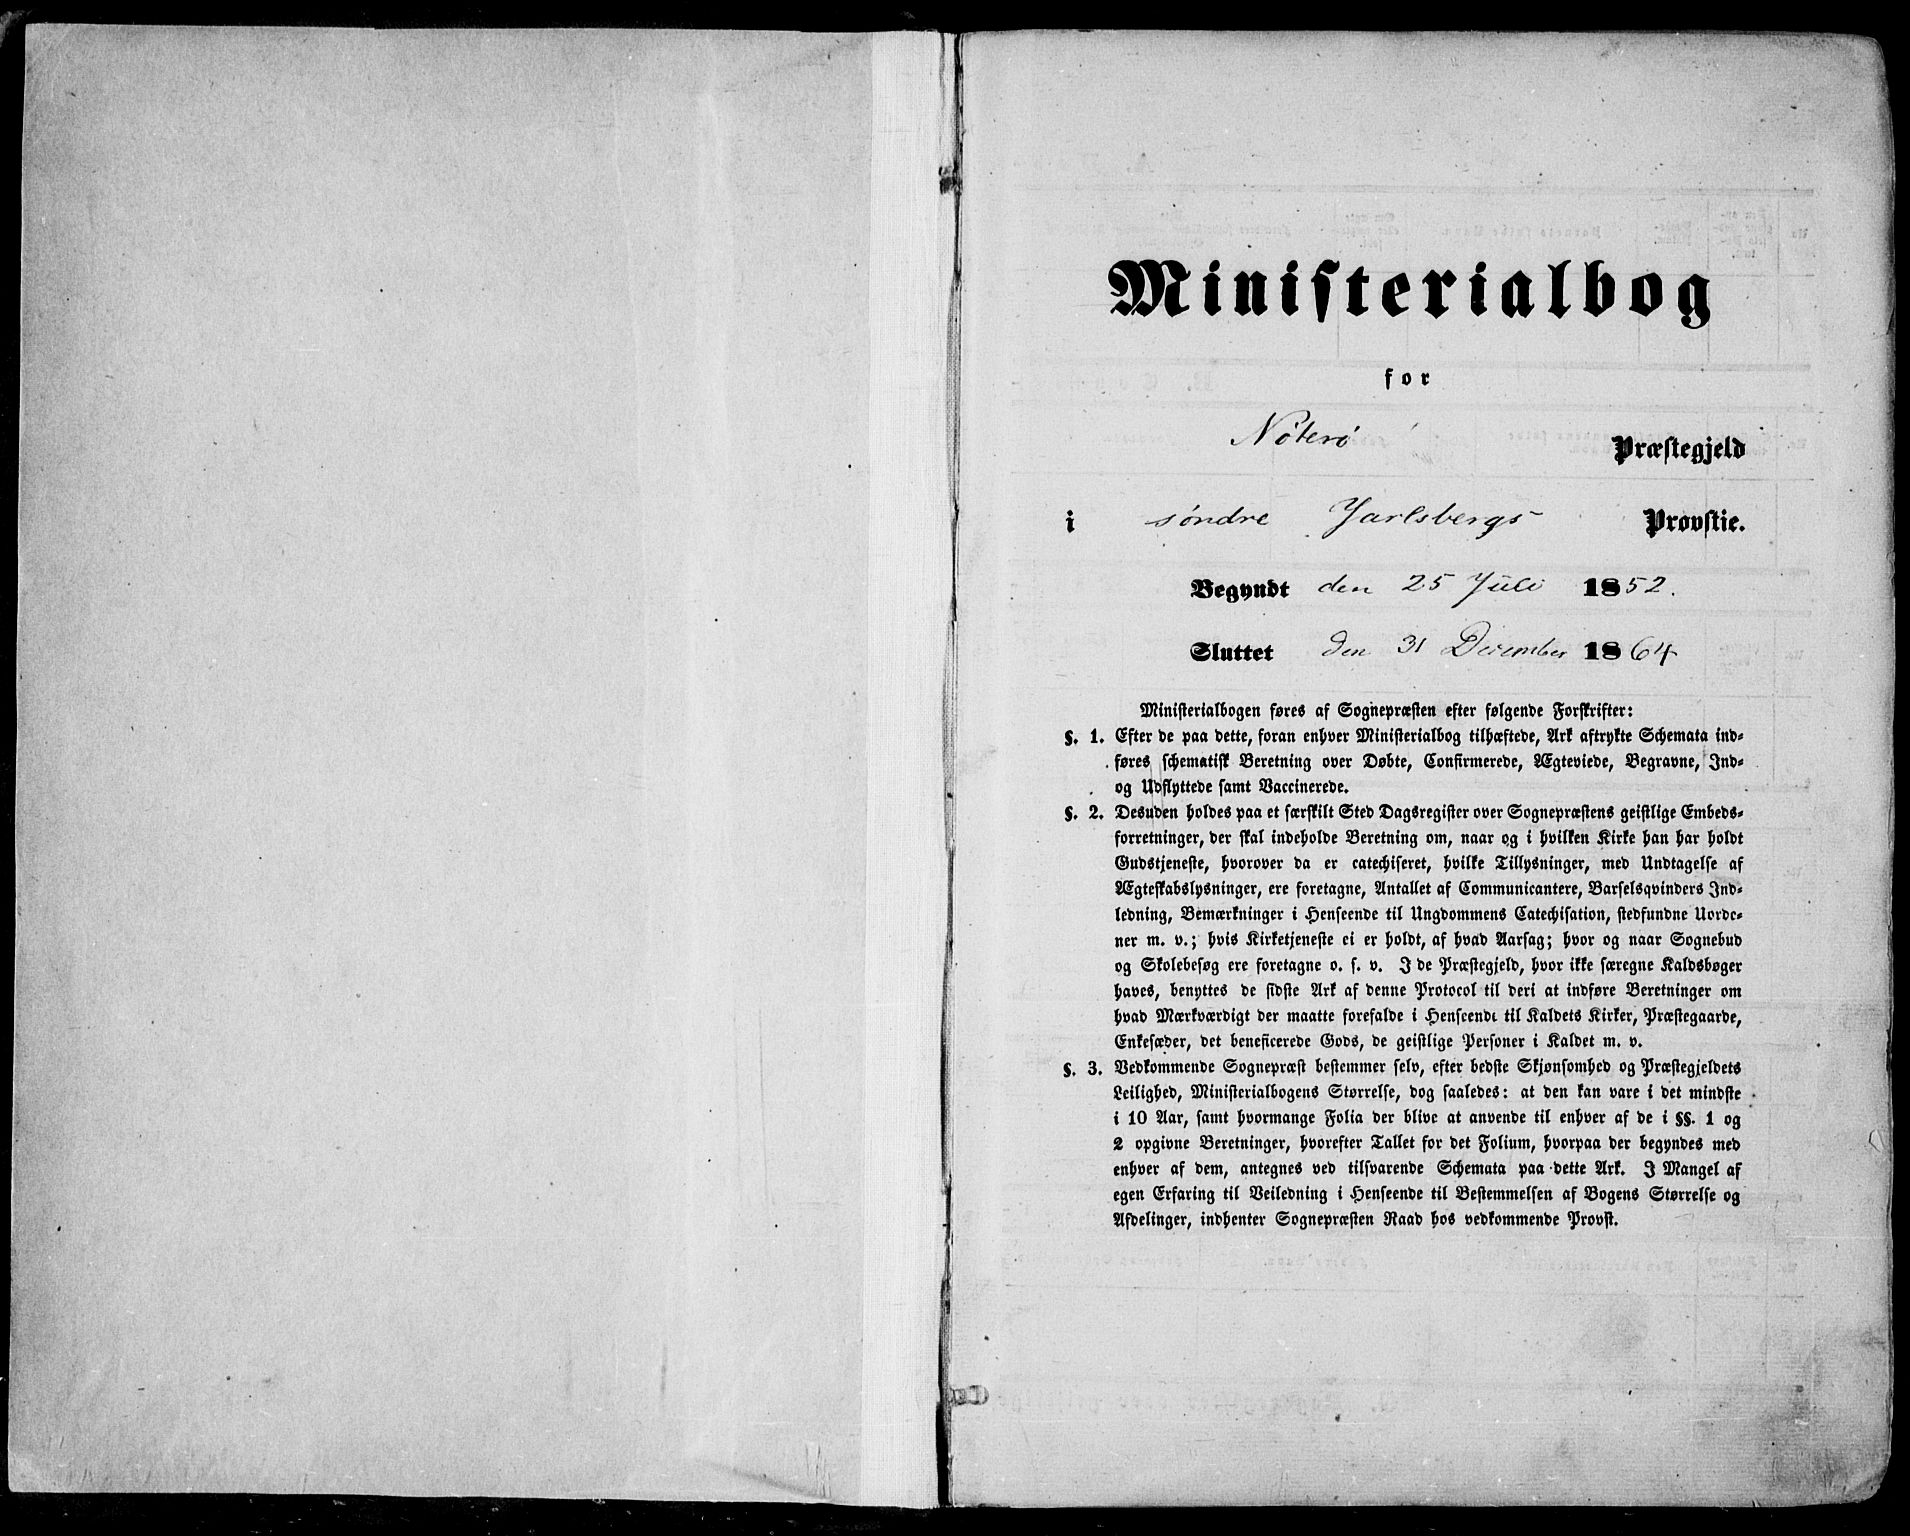 Ministerialbog
for
Nøterø Præstegjeld
i søndre Jarlsbergs Provstie.
Begyndt den 25 Juli 1852.
Sluttet den 31 December 1864
Ministerialbogen føres af Sognepræsten efter følgende Forskrifter:
§. 1. Efter de paa dette, foran enhver Ministerialbog tilhæftede, Ark aftrykte Schemata ind-
føres schematisk Beretning over Døbte, Confirmerede, Ægteviede, Begravne, Ind-
og Udflyttede samt Vaccinerede.
§. 2. Desuden holdes paa et særskilt Sted Dagsregister over Sognepræstens geistlige Embeds-
forretninger, der skal indeholde Beretning om, naar og i hvilken Kirke han har holdt
Gudstjeneste, hvorover da er catechiseret, hvilke Tillysninger, med Undtagelse af
Ægteskabslysninger, ere foretagne, Antallet af Communicantere, Barselsqvinders Ind-
ledning, Bemærkninger i Henseende til Ungdommens Catechisation, stedfundne Uorde-
ner m. v.; hvis Kirketjeneste ei er holdt, af hvad Aarsag; hvor og naar Sognebud
og Skolebesøg ere foretagne o. s. v. I de Præstegjeld, hvor ikke særegne Kaldsbøger
haves, benyttes de sidste Ark af denne Protocol til deri at indføre Beretninger om
hvad Mærkværdigt der maatte forefalde i Henseende til Kaldets Kirker, Præstegaarde,
Enkesæder, det beneficerede Gods, de geistlige Personer i Kaldet m. v.
§. 3. Vedkommende Sognepræst bestemmer selv, efter bedste Skjønsomhed og Præstegjeldets
Leilighed, Ministerialbogens Størrelse, dog saaledes: at den kan vare i det mindste
i 10 Aar, samt hvormange Folia der blive at anvende til enhver af de i §§. 1 og
2 opgivne Beretninger, hvorefter Tallet for det Folium, hvorpaa der begyndes med
enhver af dem, antegnes ved tilsvarende Schemata paa dette Ark. I Mangel af
egen Erfaring til Veiledning i Henseende til Bestemmelsen af Bogens Størrelse og
Afdelinger, indhenter Sognepræsten Raad hos vedkommende Provst.